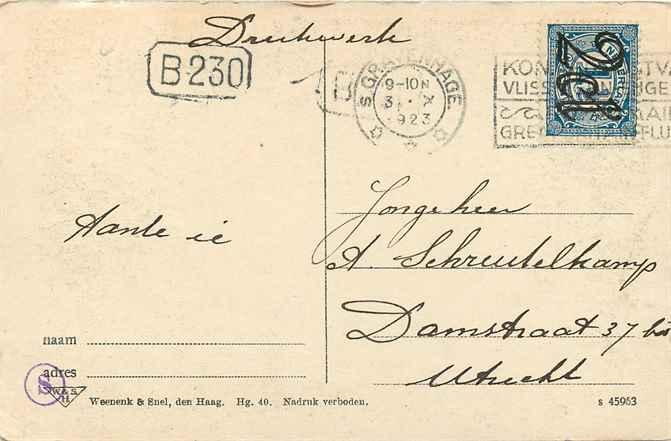 Drukwerk
B·230
'S GRAVENHAGE
9-10 N
3 . X
1923
KON
VLISS
GRE
2
Jongeheer
A. Schreutelkamp
Damstraat 37 bis
Utrecht
naam
adres
S
W & S
H
Weenenk & Snel, den Haag. Hg. 40. Nadruk verboden.
s 45963